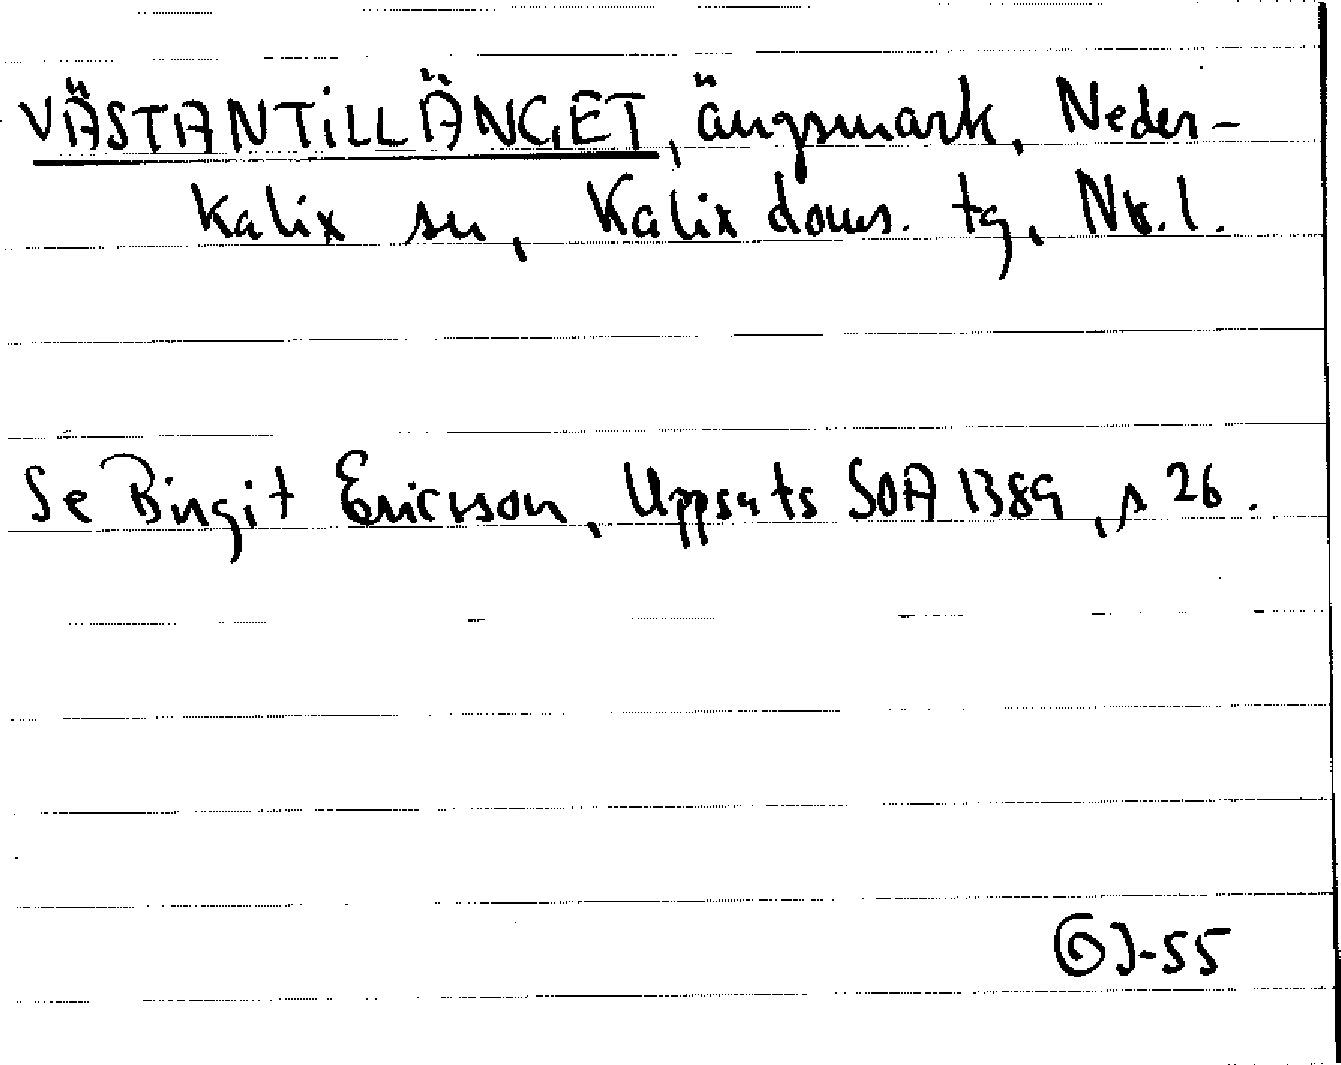 VÄSTANTILLÄNGET, ängsmark, Neder-
kalix sn, Kalix doms. tg, Nb. l.
Se Birgit Ericson, Uppsats SOA 1389, s 26.